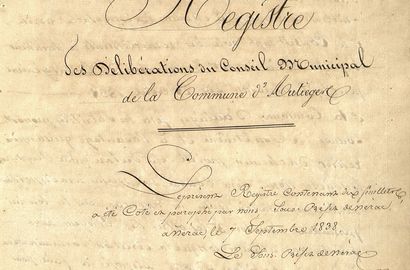 Registre
Des Délibérations du Conseil Municipal
de la Commune d'Autiege
Le présent Registre Contenant dix feuillets
a été Coté et paraphé par nous Sous-Préfet de nerac
a nerac le 7 Septembre 1838
Le Sous-Préfet de nerac